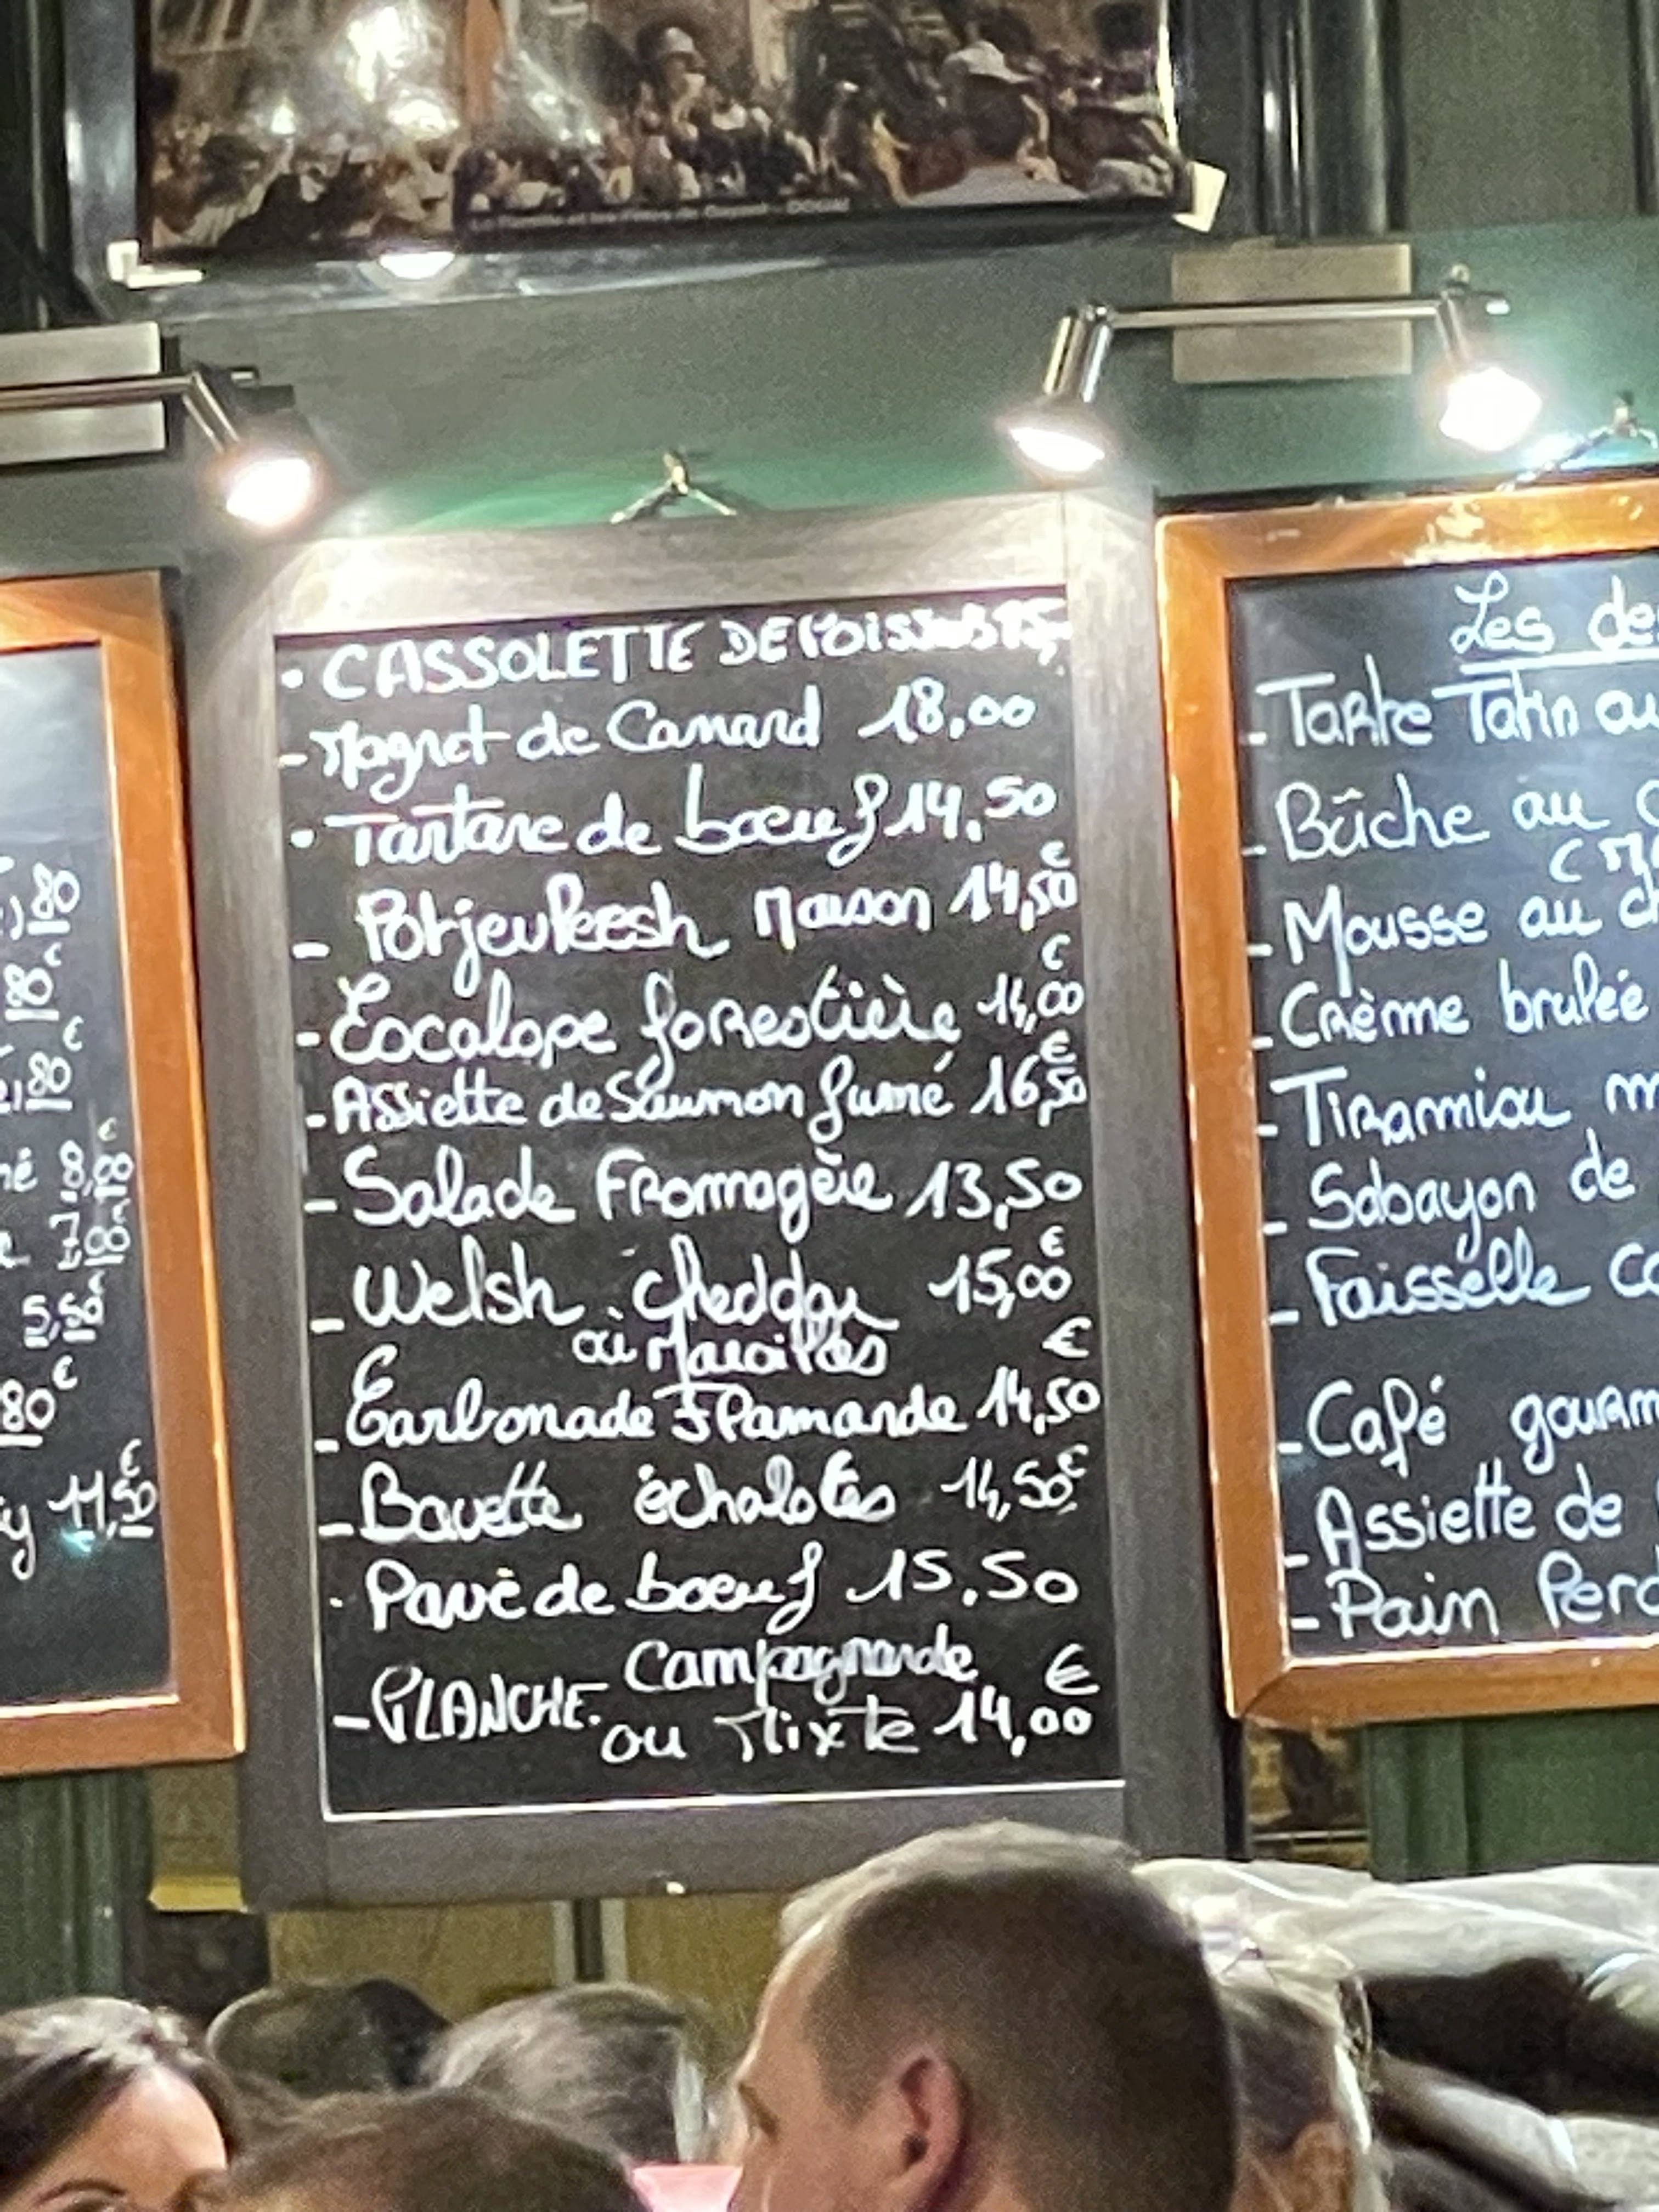 80
80€
80€
né 8,80€
7,00
5,50€
80€
y 11,50€
• CASSOLETTE DE POISSONS 15,-
- Magret de Canard 18,00
• Tartare de boeuf 14,50
- Potjevleesh Maison 14,50€
- Escalope forestière 14,00€
- Assiette de Saumon fumé 16,50€
- Salade Fromagère 13,50
- Welsh : Cheddar 15,00€
ou Maroilles
- Carbonade Flamande 14,50€
- Bavette échalotes 14,50€
· Pavé de boeuf 15.50
- PLANCHE. Campagnarde
ou Mixte 14,00€
Les de
- Tarte Tatin au
- Bûche au
- Mousse au ch
- Crème brulée
- Tiramisu m
- Sabayon de
- Faisselle co
- Café gourm
- Assiette de
- Pain Perd